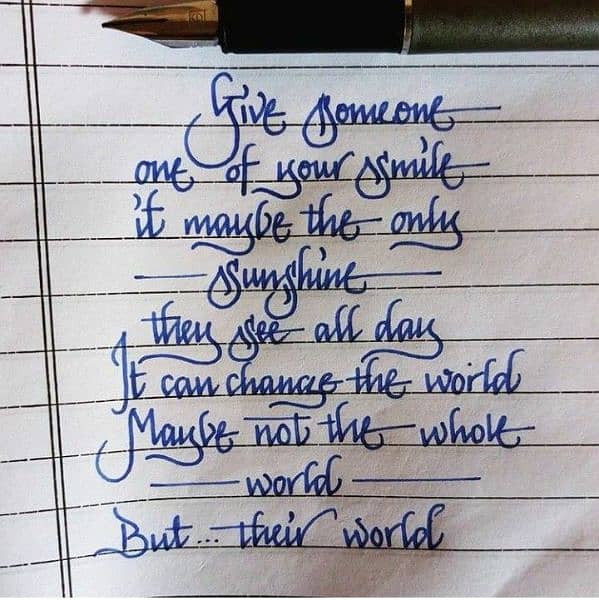 Give someone
one of your smile
it maybe the only
sunshine
they see all day
It can change the world
Maybe not the whole
world
But... their world